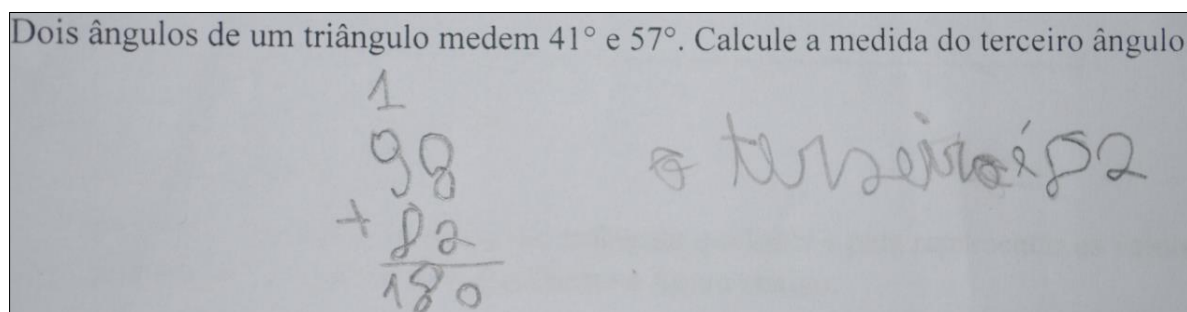 Dois ângulos de um triângulo medem 41° e 57°. Calcule a medida do terceiro ângulo
1
98
+ 82
180
o terseiro é 82